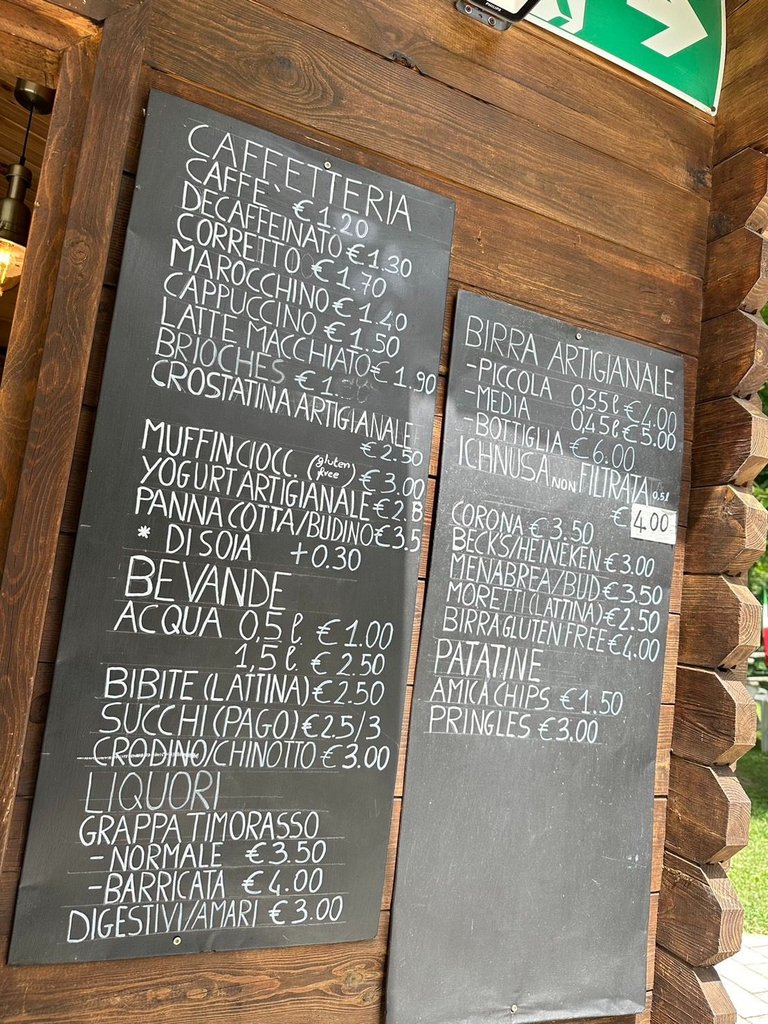 PHILIPS
CAFFETTERIA
CAFFE' € 1.20
DECAFFEINATO € 1.30
CORRETTO € 1.70
MAROCCHINO € 1.40
CAPPUCCINO € 1.50
LATTE MACCHIATO € 1.90
BRIOCHES €
CROSTATINA ARTIGIANALE
€ 2.50
MUFFIN CIOCC. (gluten free) € 3.00
YOGURT ARTIGIANALE €
PANNA COTTA/BUDINO € 3.5
* DI SOIA +0.30
BEVANDE
ACQUA 0,5 l. € 1.00
1,5 l. € 2.50
BIBITE (LATTINA) € 2.50
SUCCHI (PAGO) € 2.5/3
CRODINO/CHINOTTO € 3.00
LIQUORI
GRAPPA TIMORASSO
- NORMALE € 3.50
- BARRICATA € 4.00
DIGESTIVI/AMARI € 3.00
BIRRA ARTIGIANALE
- PICCOLA 0,35 l € 4.00
- MEDIA 0,45 l € 5.00
- BOTTIGLIA € 6.00
ICHNUSA NON FILTRATA 0.5 l
€ 4.00
CORONA € 3.50
BECKS/HEINEKEN € 3.00
MENABREA/BUD € 3.50
MORETTI (LATTINA) € 2.50
BIRRA GLUTEN FREE € 4.00
PATATINE
AMICA CHIPS € 1.50
PRINGLES € 3.00